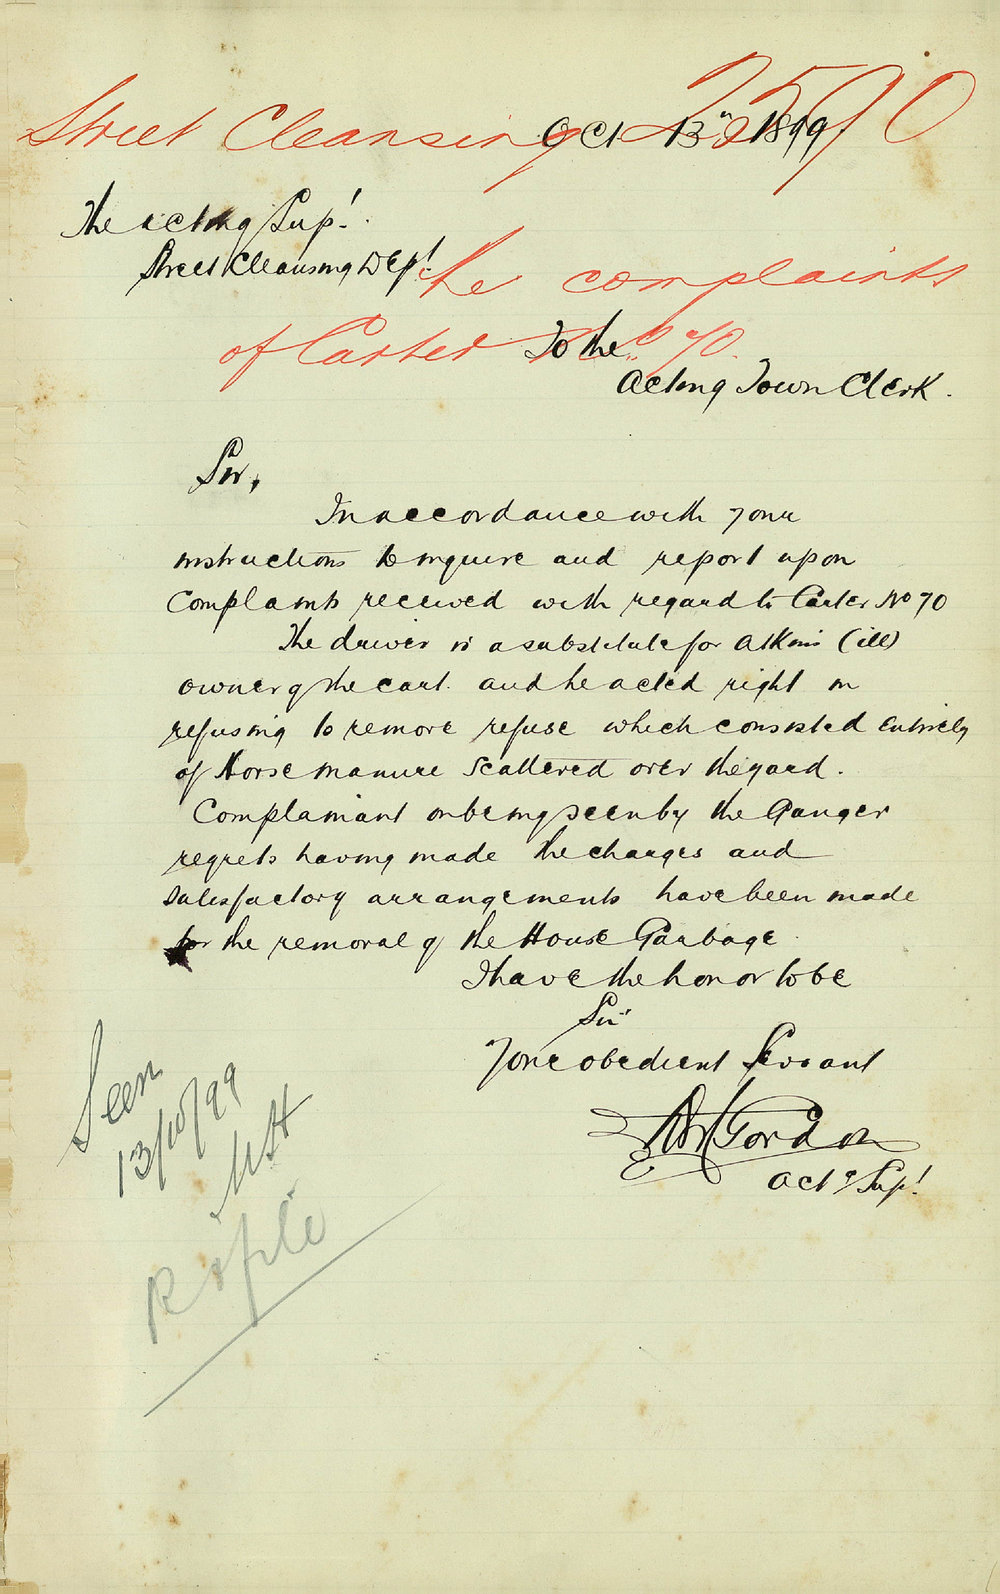 Street Cleansing 2590
Oct 13th 1899
The Acting Supt.
Street Cleansing Dept.
The complaints
of Carter No 70.
To the
Acting Town Clerk.
Sir,
In accordance with your
instructions to inquire and report upon
Complaints received with regard to Carter No 70
The driver is a substitute for Atkins (ill)
owner of the cart. and he acted right in
refusing to remove refuse which consisted entirely
of Horse manure scattered over the yard.
Complainant on being seen by the Ganger
regrets having made the charges and
satisfactory arrangements have been made
for the removal of the House Garbage
I have the honor to be
Sir
Your obedient Servant
Gordon
Actg Supt
Seen
13/10/99